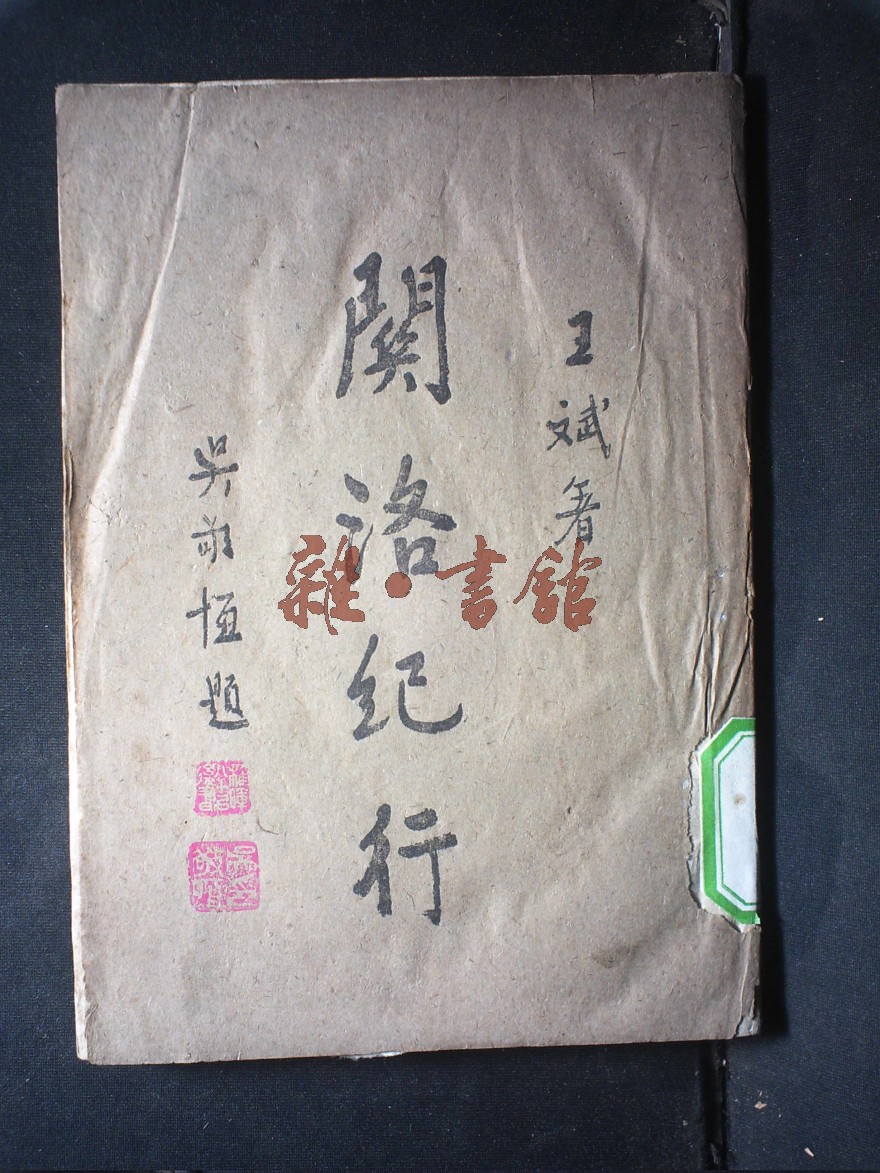 王斌著
關洛紀行
吳敬恒題
雜·書館